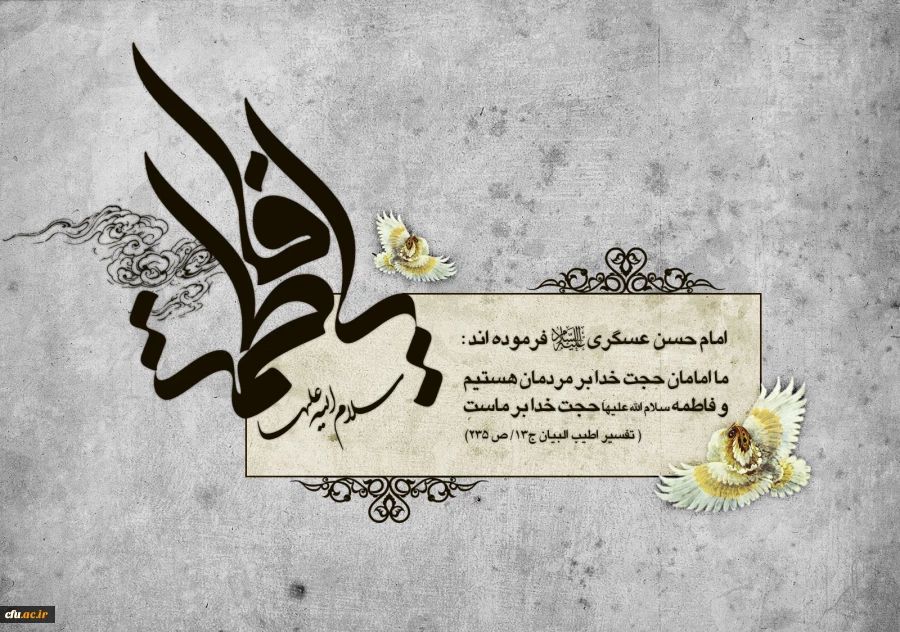 یا فاطمة
سلام الله علیها
امام حسن عسگری علیه السلام فرموده اند :
ما امامان حجت خدا بر مردمان هستیم
و فاطمه سلام الله علیها حجت خدا بر ماست
( تفسیر اطیب البیان ج۱۳/ ص ۲۳۵)
cfu.ac.ir